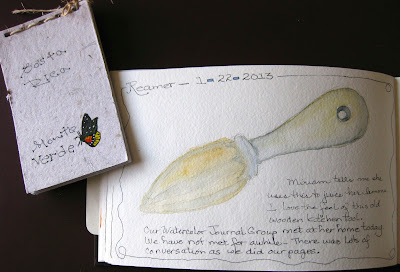 Costa
Rica
Monte
Verde
Reamer — 1-22-2013
Miriam tells me she
uses this to juice her lemons
I love the feel of this old
wooden kitchen tool.
Our Watercolor Journal Group met at her home today
We have not met for awhile - There was lots of
conversation as we did our pages.